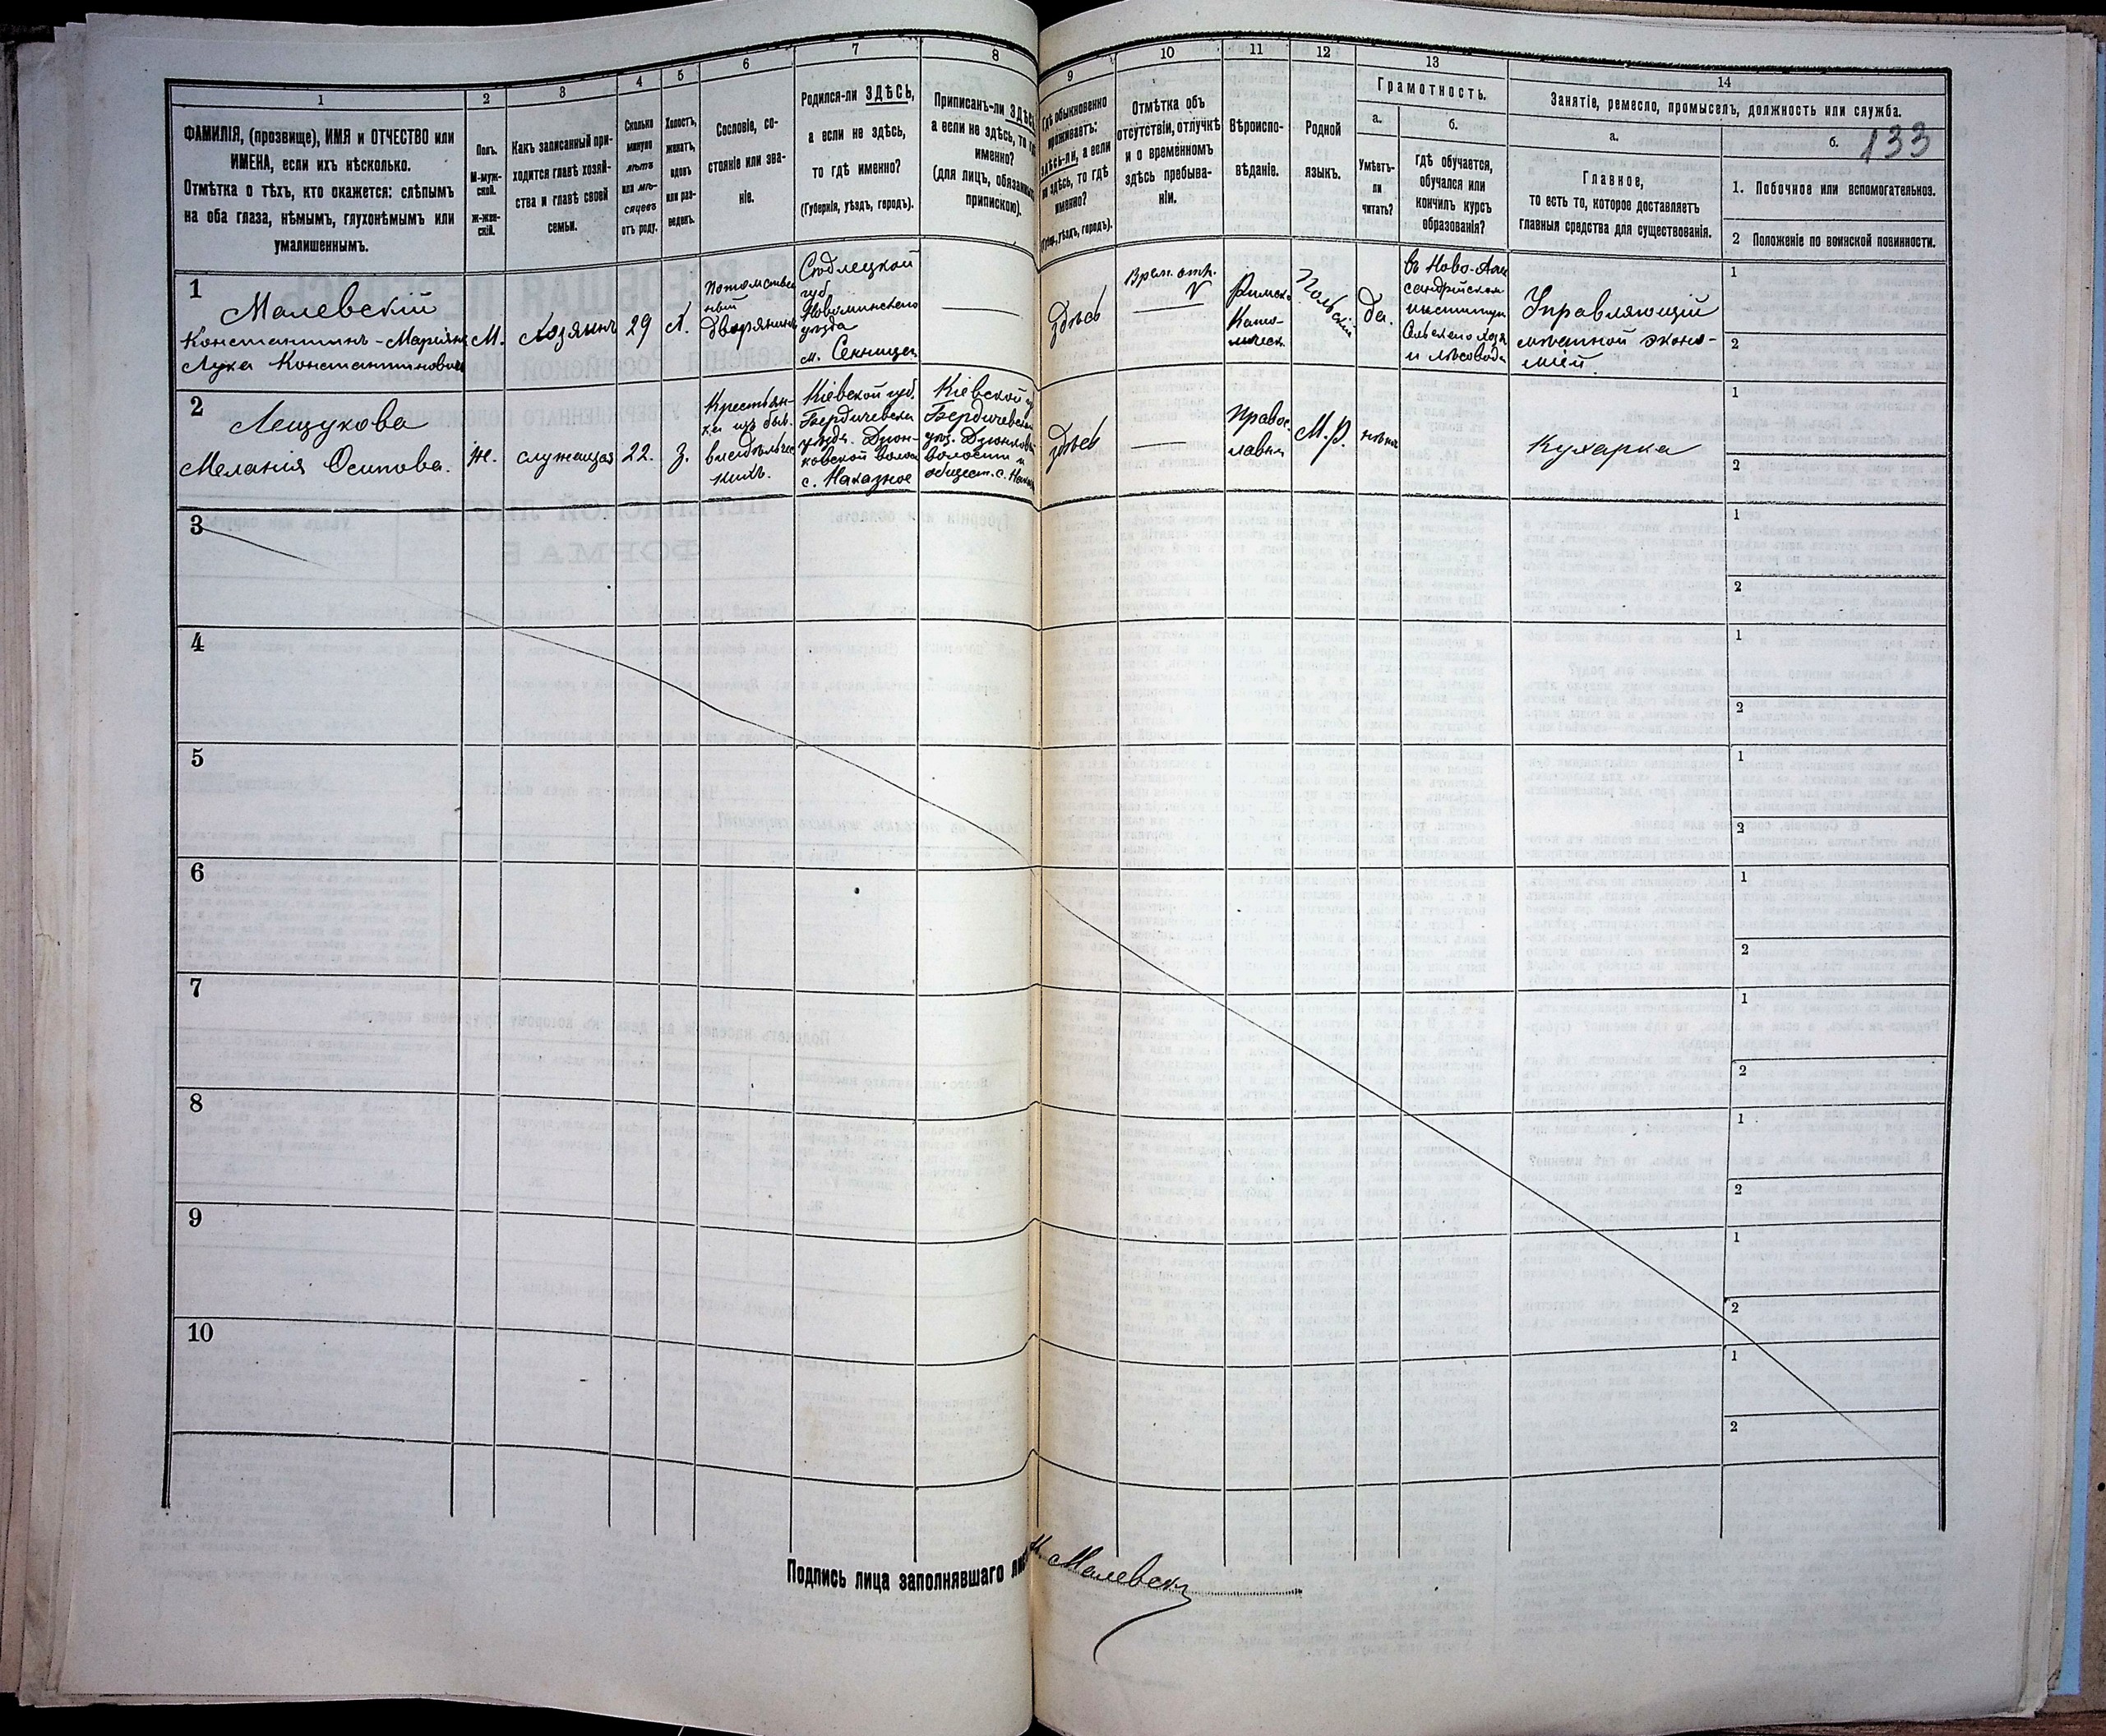 1
2
3
4
5
6
7
8
9
10
11
12
13
14
ФАМИЛІЯ, (прозвище), ИМЯ и ОТЧЕСТВО или
ИМЕНА, если ихъ нѣсколько.
Отмѣтка о тѣхъ, кто окажется: слѣпымъ
на оба глаза, нѣмымъ, глухонѣмымъ или
умалишеннымъ.
Полъ.
М-муж-
ской.
Ж-жен-
скій.
Какъ записанный при-
ходится главѣ хозяй-
ства и главѣ своей
семьи.
Сколько
минуло
лѣтъ
или мѣ-
сяцевъ
отъ роду.
Холостъ,
женатъ,
вдовъ
или раз-
веденъ.
Сословіе, со-
стояніе или зва-
ніе.
Родился-ли ЗДѢСЬ,
а если не здѣсь,
то гдѣ именно?
(Губернія, уѣздъ, городъ).
Приписанъ-ли ЗДѢСЬ
а если не здѣсь, то гдѣ
именно?
(для лицъ, обязанныхъ
припискою).
Гдѣ обыкновенно
проживаетъ:
ЗДѢСЬ-ли, а если
не здѣсь, то гдѣ
именно?
(Губерн., уѣздъ, городъ).
Отмѣтка объ
отсутствіи, отлучкѣ
и о временномъ
здѣсь пребыва-
ніи.
Вѣроиспо-
вѣданіе.
Родной
языкъ.
Грамотность.
а.
Умѣетъ-
ли
читать?
б.
гдѣ обучается,
обучался или
кончилъ курсъ
образованія?
Занятіе, ремесло, промыселъ, должность или служба.
а.
Главное,
то есть то, которое доставляетъ
главныя средства для существованія.
б.
133
1. Побочное или вспомогательное.
2 Положеніе по воинской повинности.
1
Малевскій
Константинъ-Маріянъ
Лука Константиновичъ
М.
Хозяинъ
29
Х.
Потомствен
ный
дворянинъ
Сѣдлецкой
губ.
Новоминскаго
уѣзда
м. Сенница
здѣсь
Врем. отл.
V
Римско
Като-
лическ.
Польскій
да.
въ Ново-Алек
сандрійском
институт
Сельскаго хозя
и лѣсоводс
Управляющій
мѣстной эконо-
міей.
1
2
2
Лещукова
Меланія Осипова.
Ж.
служащая
22.
З.
Крестьян-
ка изъ быв.
владѣльчес
кихъ.
Кіевской губ.
Бердичевска
уѣзда. Дзюн-
ковской волос
с. Наказное
Кіевской г
Бердичевска
уѣз. Дзюнков
волости и
общест. с. Нака
здѣсь
Правос
лавн
М.Р.
нѣтъ
Кухарка
1
2
3
1
2
4
1
2
5
1
2
6
1
2
7
1
2
8
1
2
9
1
2
10
1
2
Подпись лица заполнявшаго лис
Малевск